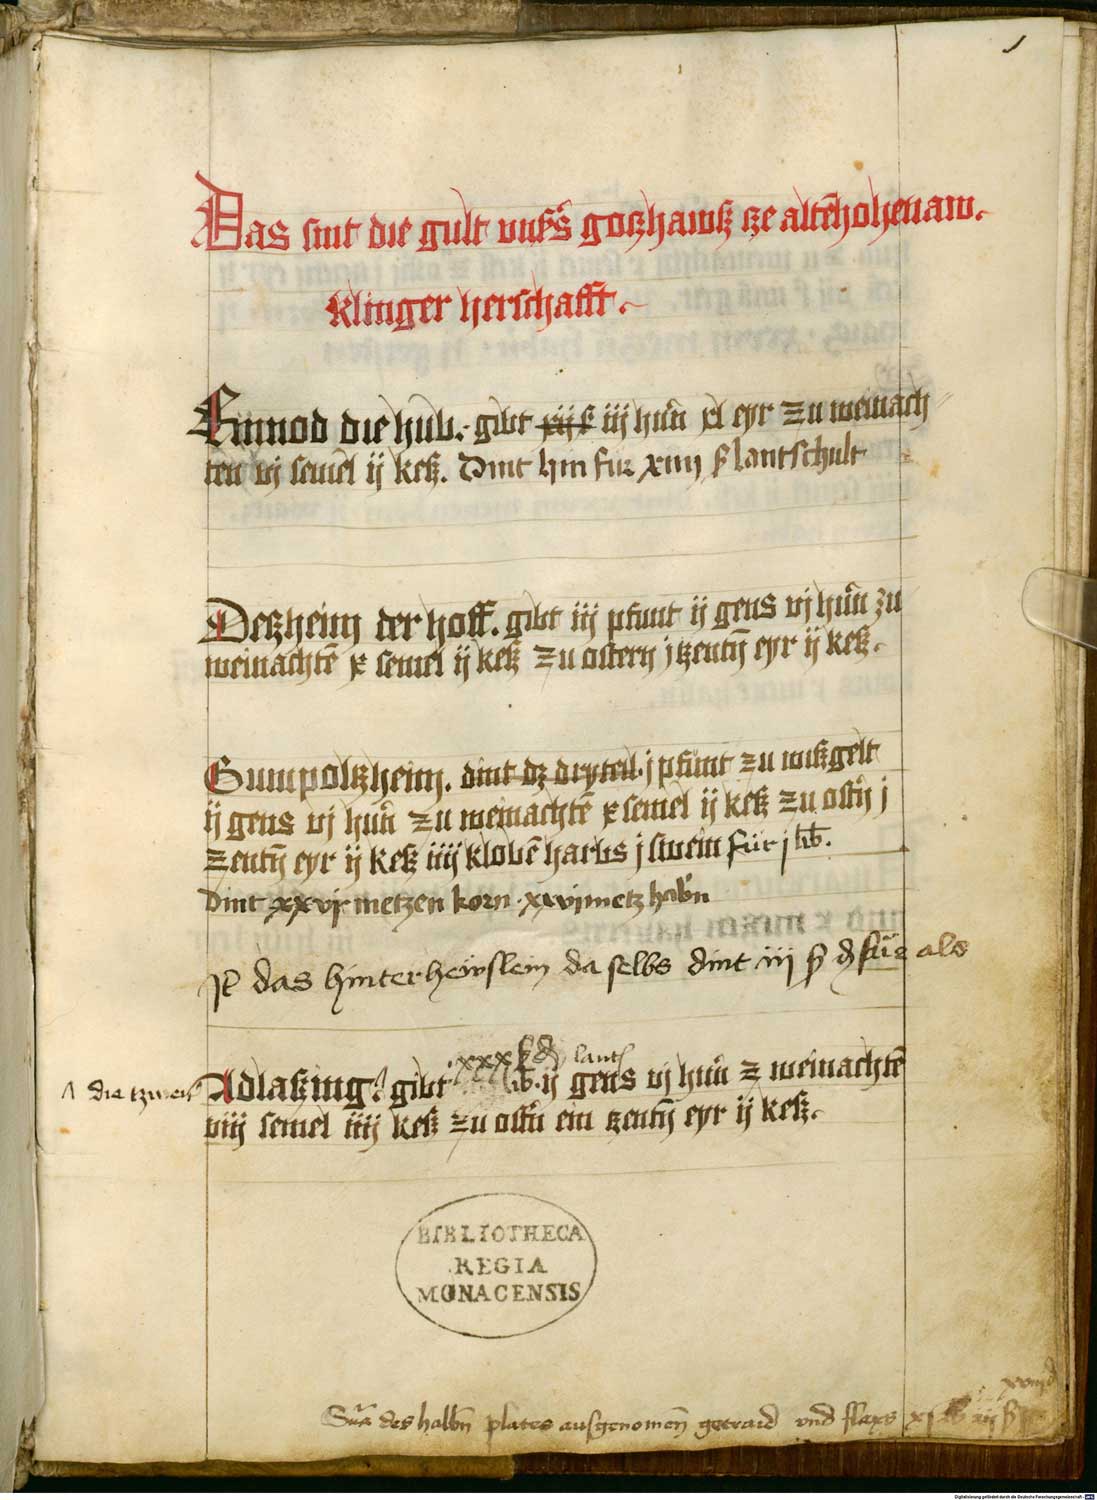 1
Das sint die gult vnsers gotzhawß ze altēhohenaw.
klinger herschafft.
Einnod die hub. gibt iij hun̄ xl eyr zu weinach
ten vj semel ij keß. Dint hin fur xiiij ß lantschult
Detzheim der hoff. gibt iij pfunt ij gens vj hun̄ zu
weinachtē x semel ij keß zu ostern j tzentn̄ eyr ij keß.
Gumpoltzheim. dint dz dryteil j pfunt zu wißgelt
ij gens vj hun̄ zu weinachtē x semel ij keß zu ostn̄ j
zentn̄ eyr ij keß iiij klobē harbs j swein für j lb.
dint xxvj metzen korn. xxvj metz habn̄
Jt das hinterhewslein da selbs dint iij ß ₰ für als
xxx ß ₰ lantß
die tzwen Adlaßing gibt ij gens vj hun̄ z weinachtē
viij semel iiij keß zu ostn̄ ein tzentn̄ eyr ij keß.
BIBLIOTHECA
REGIA
MONACENSIS
xviij d
Sūa des halbn̄ plates ausgenomen̄ getraid vnd flaxs
Digitalisierung gefördert durch die Deutsche Forschungsgemeinschaft - DFG